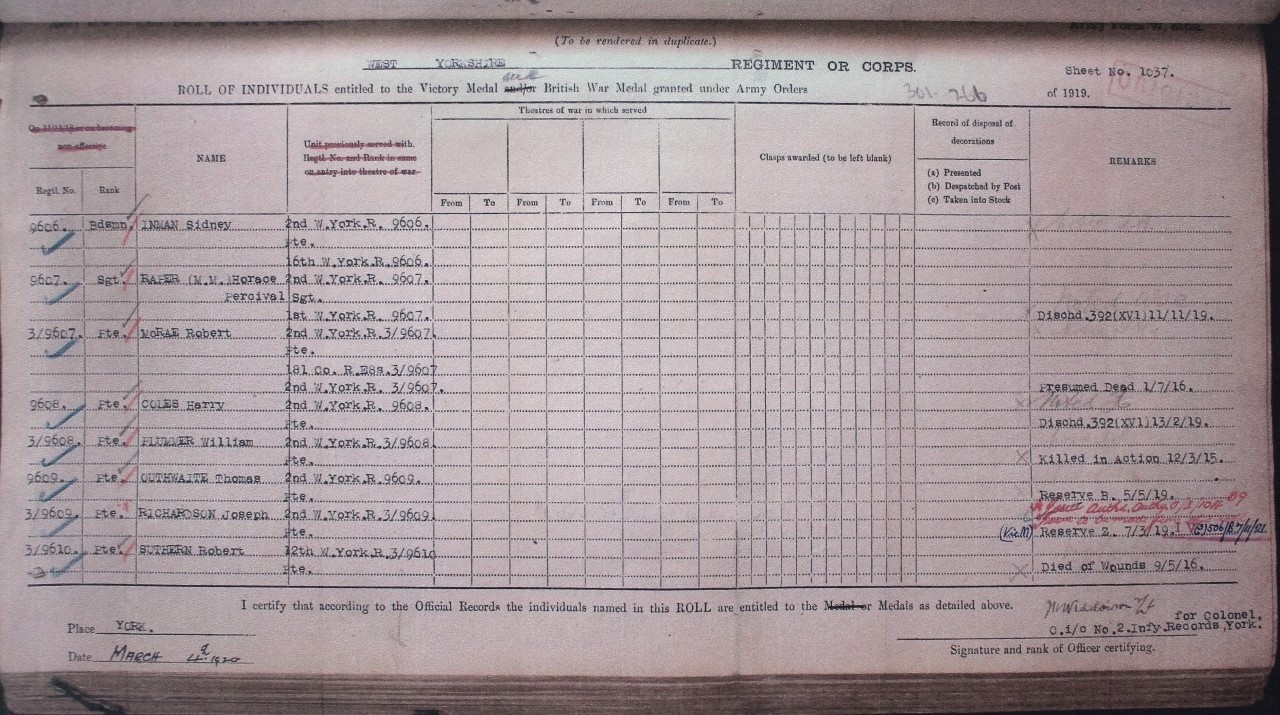 (To be rendered in duplicate.)
WEST YORKSHIRE REGIMENT OR CORPS.
Sheet No. 1037.
ROLL OF INDIVIDUALS entitled to the Victory Medal and/or British War Medal granted under Army Orders 301. 266 of 1919.
On 11/11/18 or on becoming non-effective
Regtl. No. Rank
NAME
Unit previously served with. Regtl. No. and Rank in same on entry into theatre of war
Theatres of war in which served
From To From To From To From To
Clasps awarded (to be left blank)
Record of disposal of decorations
(a) Presented
(b) Despatched by Post
(c) Taken into Stock
REMARKS
9606. Bdsmn. INMAN Sidney 2nd W.York.R. 9606.
Pte.
16th W.York.R. 9606.
9607. Sgt. RAPER (M.M.) Horace 2nd W.York.R. 9607.
Percival Sgt.
1st W.York.R. 9607. Dischd.392(XVI)11/11/19.
3/9607. Pte. McRAE Robert 2nd W.York.R.3/9607
Pte.
181 Co. R.E&s.3/9607
2nd W.York.R. 3/9607. Presumed Dead 1/7/16.
9608. Pte. COLES Harry 2nd W.York.R. 9608.
Pte. Dischd.392(XVI)13/2/19.
3/9608. Pte. PLUMMER William 2nd W.York.R.3/9608
Pte. Killed in Action 12/3/15.
9609. Pte. OUTHWAITE Thomas 2nd W.York.R. 9609.
Pte. Reserve B. 5/5/19.
3/9609. Pte. RICHARDSON Joseph 2nd W.York.R.3/9609
Pte. (Vic M) Reserve Z. 7/3/19.
3/9610. Pte. SUTHERN Robert 12th W.York.R.3/9610
Pte. Died of Wounds 9/5/16.
I certify that according to the Official Records the individuals named in this ROLL are entitled to the Medal or Medals as detailed above.
for Colonel,
Place YORK.
O.i/c No.2.Infy.Records,York.
Date MARCH 4th 1920
Signature and rank of Officer certifying.